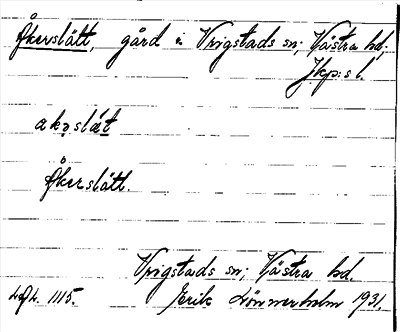 Åkerslätt, gård i Vrigstads sn; Västra hd;
Jkp:s l.
akəslæt
Åkerslätt.
Vrigstads sn; Västra hd.
1115. Erik Lönnerholm 1931.